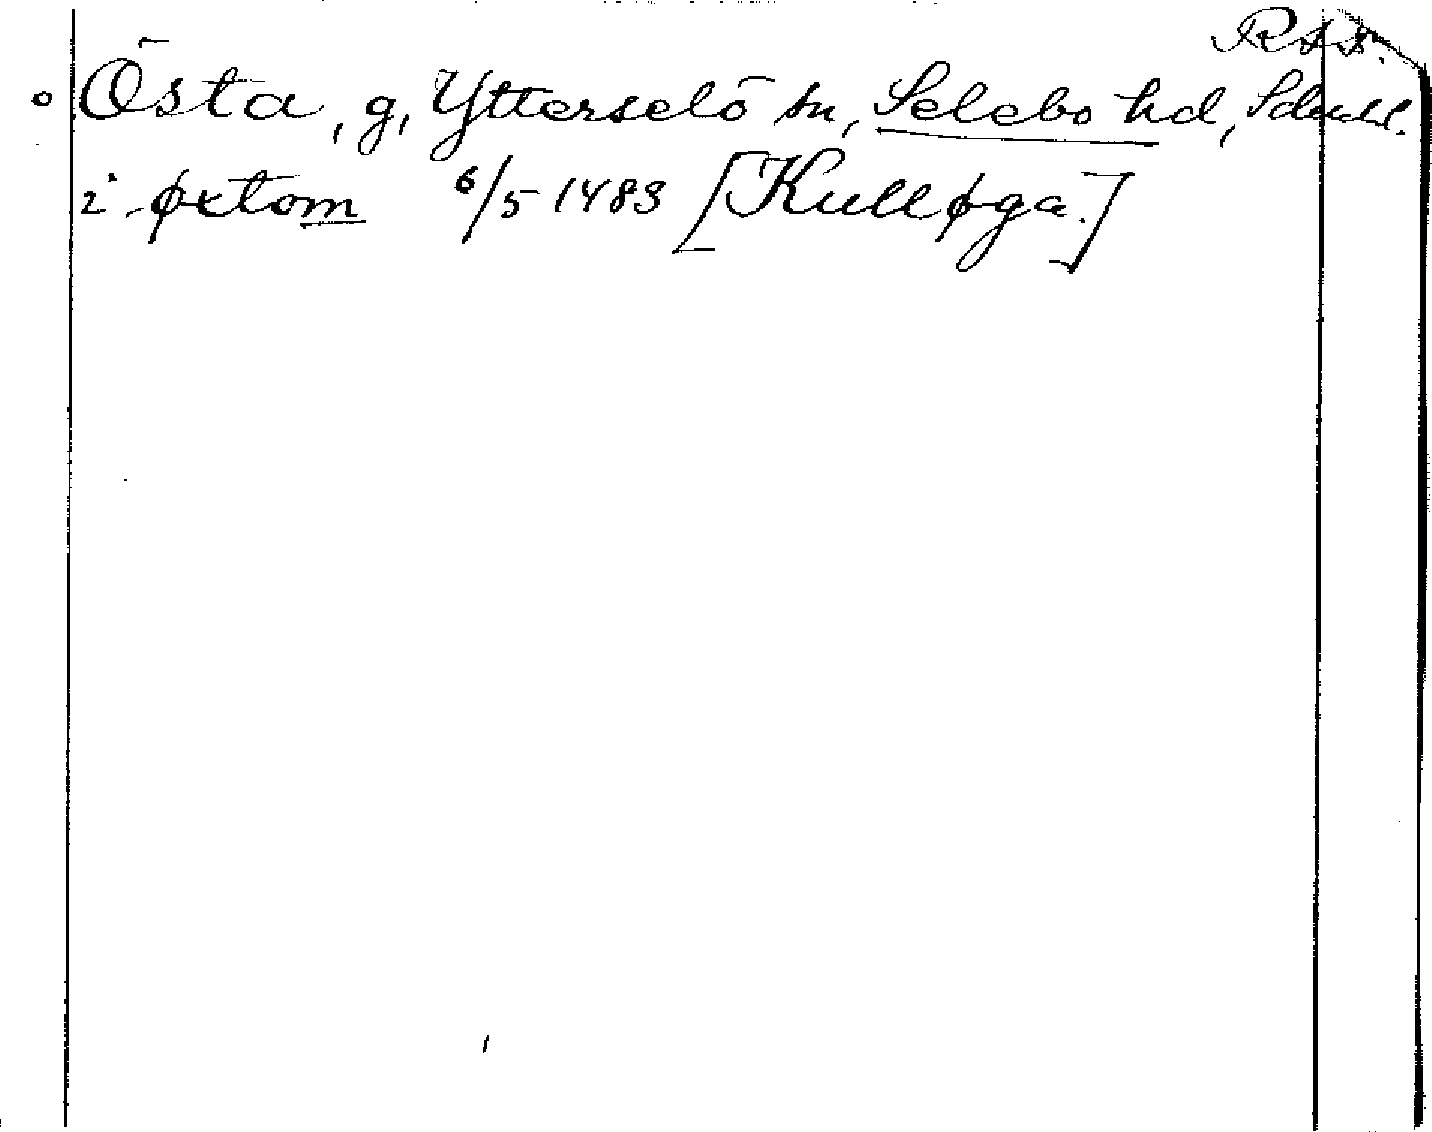 Rss.
° Östa, g, Ytterselö sn, Selebo hd, Sdml.
i øxtom 6/5 1483 [Kulløga.]